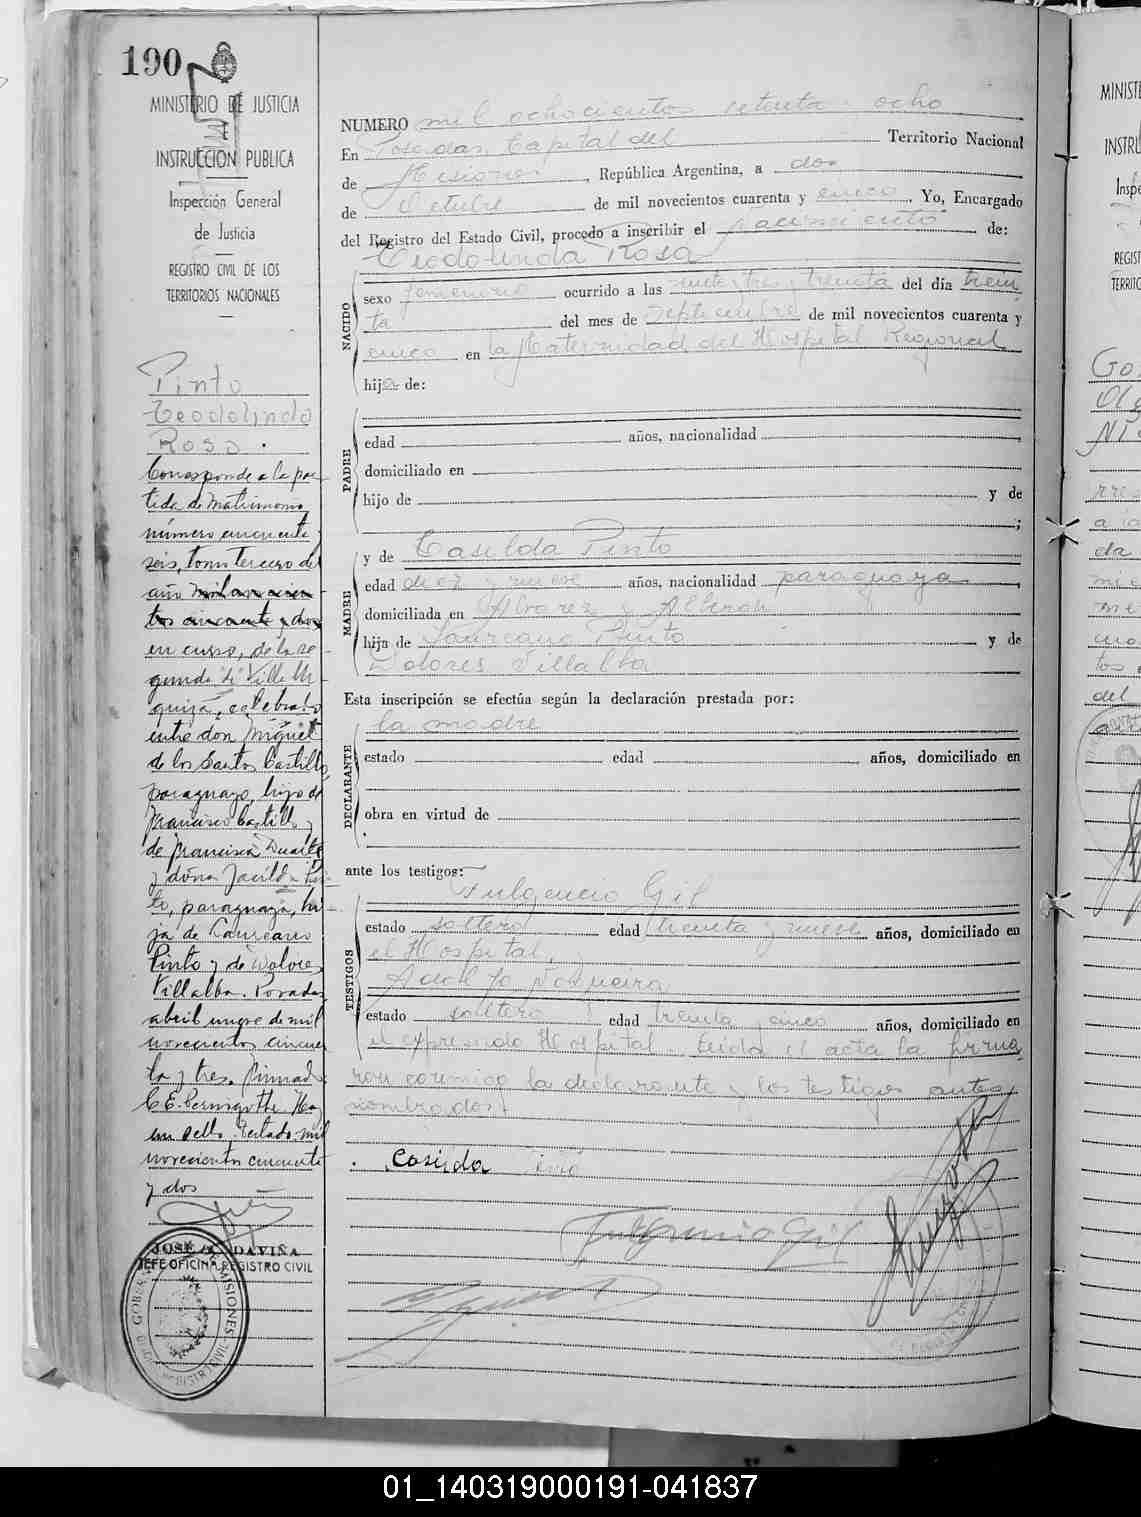 190
MINISTERIO DE JUSTICIA
E
INSTRUCCION PUBLICA
Inspección General
de Justicia
REGISTRO CIVIL DE LOS
TERRITORIOS NACIONALES
Pinto
Teodolinda
Rosa.
Corresponde a la par
tida de Matrimonio
número cincuenta
seis, tomo tercero del
año mil novecien
tos cincuenta y dos
en curso, de la se
gunda "
quiza, celebrado
entre don Miguel
de los Santos Castillo,
paraguayo, hijo de
Francisco Castillo y
de Francisca Duarte
y doña Casilda Pin
to, paraguaya, hi
ja de Laureano
Pinto y de Dolores
Villalba. Posadas
abril once de mil
novecientos cincuen
ta y tres. Firmado
C. E. Hay
un sello. Testado: mil
novecientos cincuenta
y dos
JOSE DAVIÑA
JEFE OFICINA REGISTRO CIVIL
NUMERO mil ochocientos setenta y ocho
En Posadas, Capital del Territorio Nacional
de Misiones, República Argentina, a dos
de Octubre de mil novecientos cuarenta y cinco, Yo, Encargado
del Registro del Estado Civil, procedo a inscribir el nacimiento de:
Teodolinda Rosa
NACIDO
sexo femenino ocurrido a las veinte y tres y treinta del día trein
ta del mes de septiembre de mil novecientos cuarenta y
cinco en la Maternidad del Hospital Regional
hija de:
PADRE
edad años, nacionalidad
domiciliado en
hijo de y de
;
MADRE
y de Casilda Pinto
edad diez y nueve años, nacionalidad paraguaya
domiciliada en Alvarez y Alberdi
hija de Laureano Pinto y de
Dolores Villalba
Esta inscripción se efectúa según la declaración prestada por:
la madre
DECLARANTE
estado edad años, domiciliado en
obra en virtud de
ante los testigos:
Fulgencio Gil
TESTIGOS
estado soltero edad treinta y nueve años, domiciliado en
el Hospital, y
Adolfo Nogueira
estado soltero edad treinta y cinco años, domiciliado en
el expresado Hospital. Leida el acta la firma
ron conmigo la declarante y los testigos antes
nombrados.
Casilda Pinto
Fulgencio Gil
01_140319000191-041837